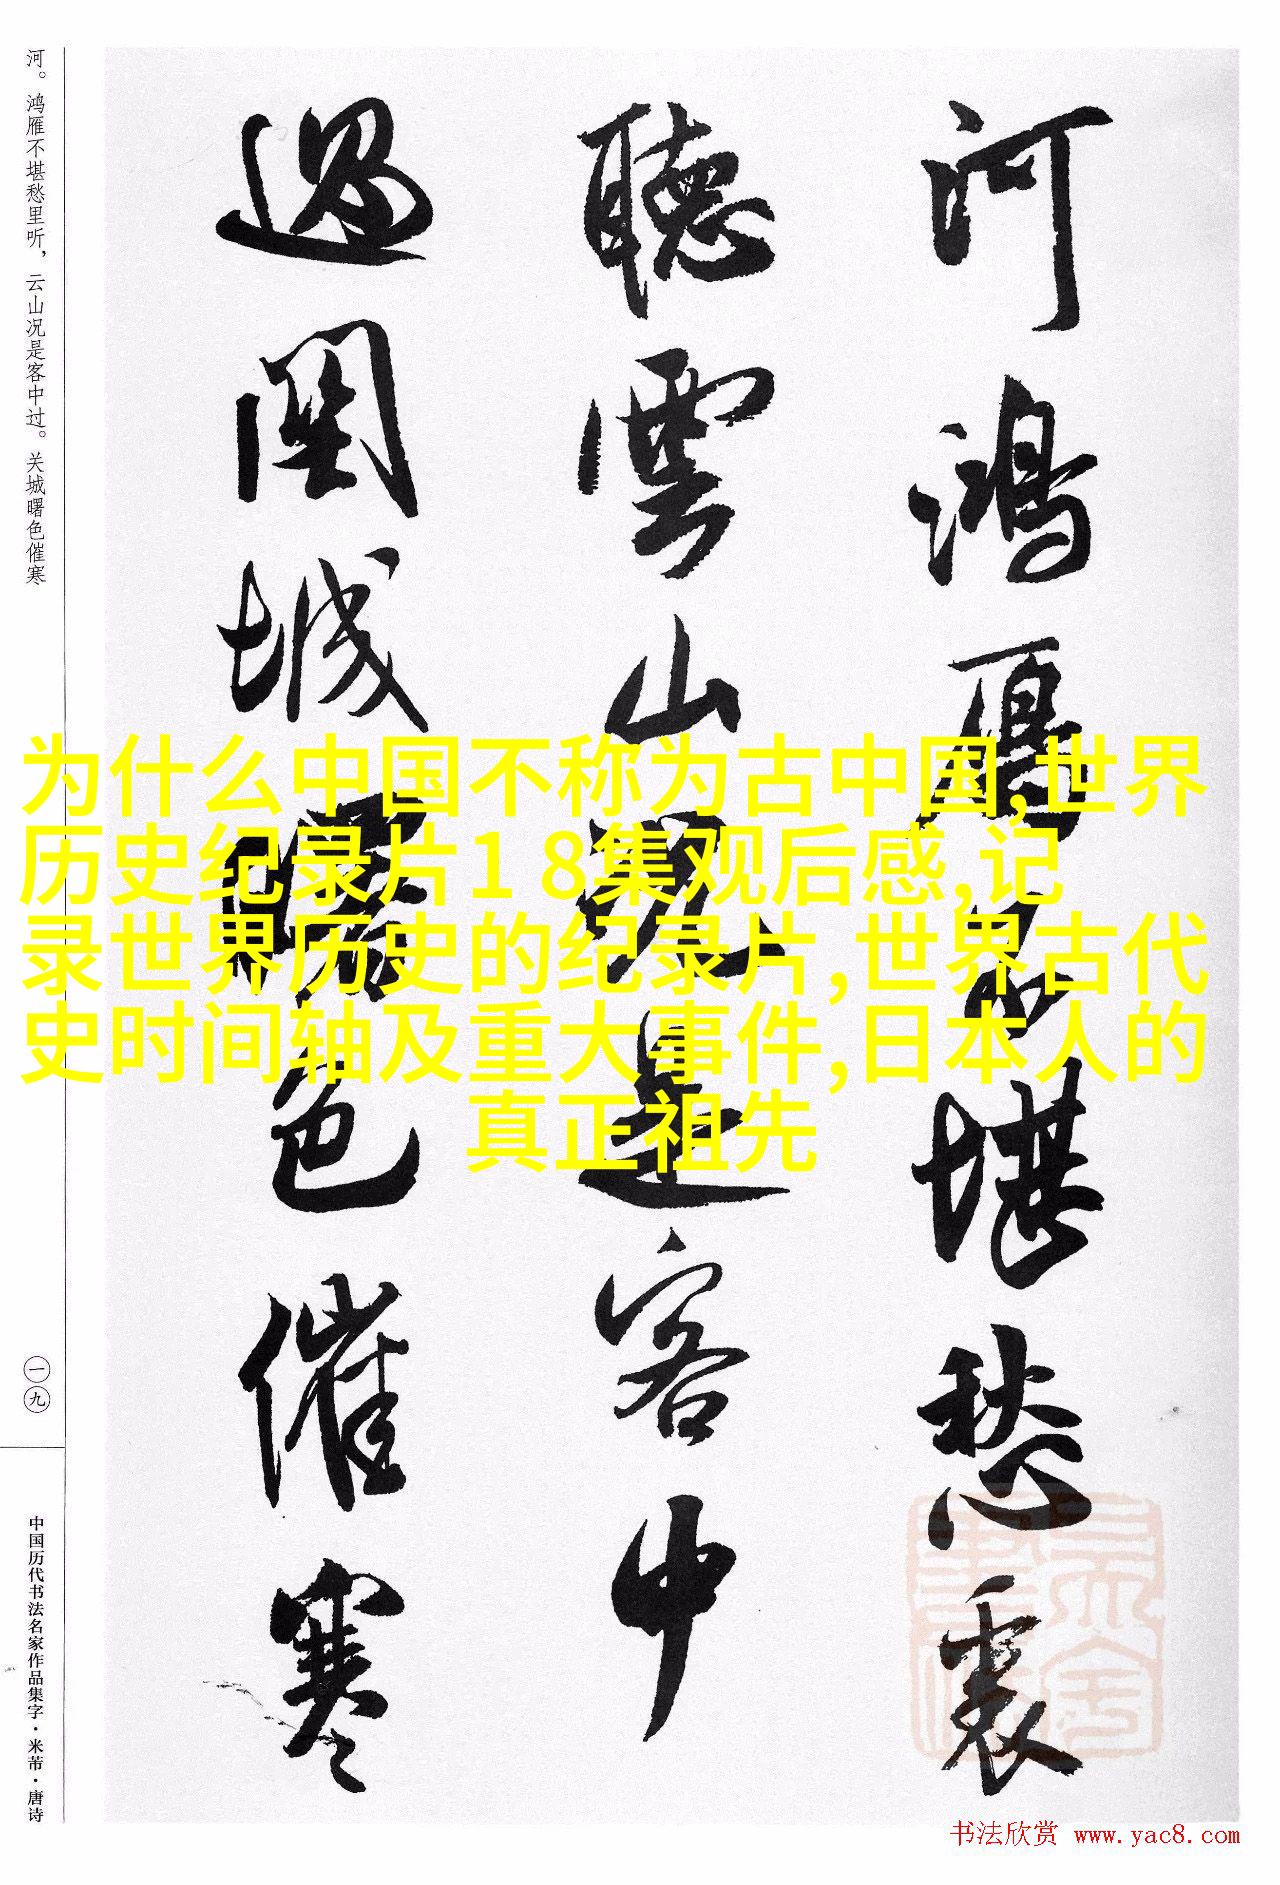 河鸿雁不堪愁裏
聽雲山況是客中
過関城曙色催寒
为什么中国不称为古中国,世界
历史纪录片1 8集观后感,记
录世界历史的纪录片,世界古代
史时间轴及重大事件,日本人的
真正祖先
河。鸿雁不堪愁里听，云山况是客中过。关城曙色催寒
一九
中国历代书法名家作品集字·米芾·唐诗
书法欣赏 www.yac8.com